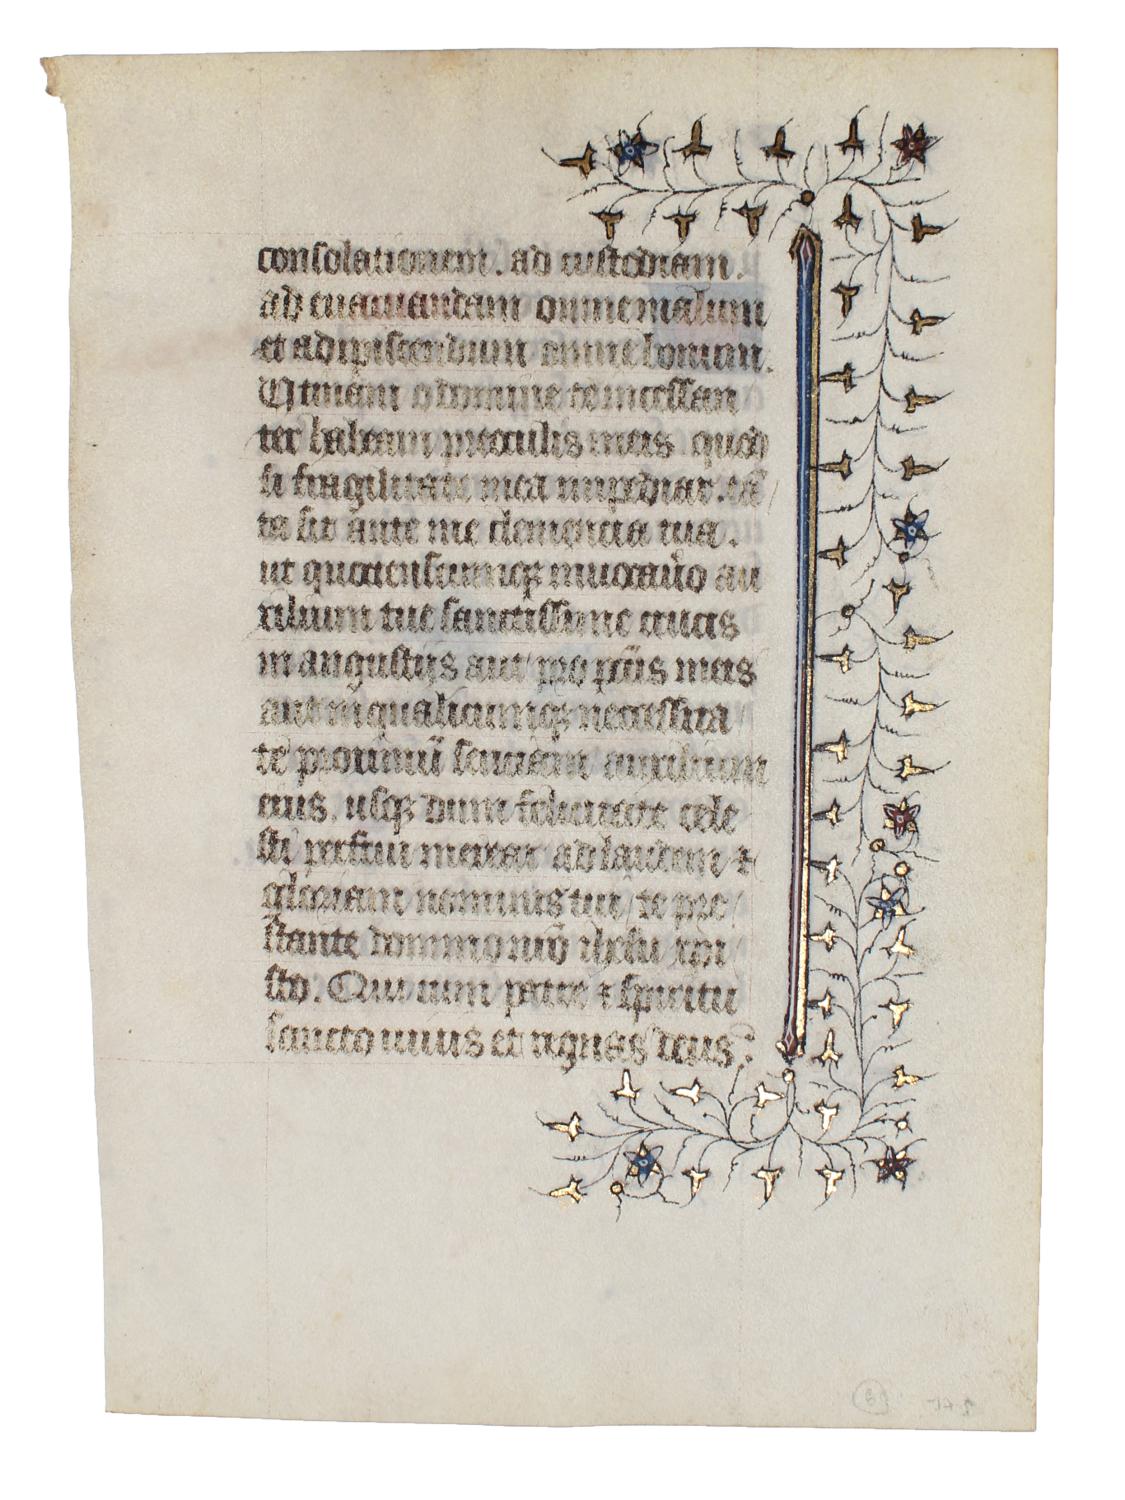 consolationem. ad custodiam.
ad euacuandam omne malum
et adipiscendum omne bonum.
Utinam o domine te incessan
ter habeam pre oculis meis quod
si fragilitate mea impediar.
sit ante me clemencia tua.
ut quocienscumq; inuocauero au
xilium tue sanctissime crucis
in angustijs aut pro meis
aut in qualicumq; necessita
te proximū senciam auxilium
eius. usq; dum felicitate cele
sti perfrui merear ad laudem ⁊
gloriam nominis tui te pre
stante domino nrō ihesu xpi
sto. Qui cum patre ⁊ spiritu
sancto uiuis et regnas deus.